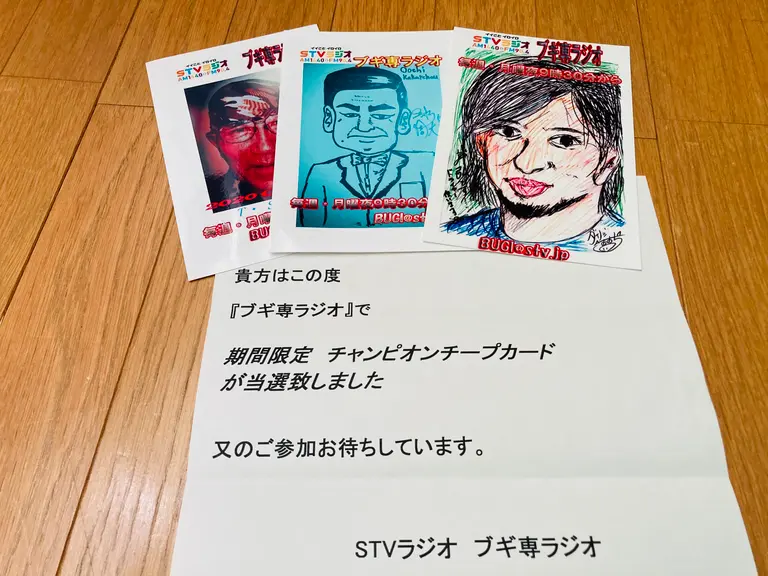 イイことイロイロ
STVラジオ
AM1440 FM90.4
ブギ専ラジオ
STVラジオ
ブギ専ラジオ
Oochi
毎週・月曜夜9時30分
BUGI@st
イイことイロイロ
STVラジオ
AM1440 FM90.4
ブギ専ラジオ
毎週・月曜夜9時30分から
BUGI@stv.jp
貴方はこの度
『ブギ専ラジオ』で
期間限定 チャンピオンチープカード
が当選致しました
又のご参加お待ちしています。
STVラジオ ブギ専ラジオ